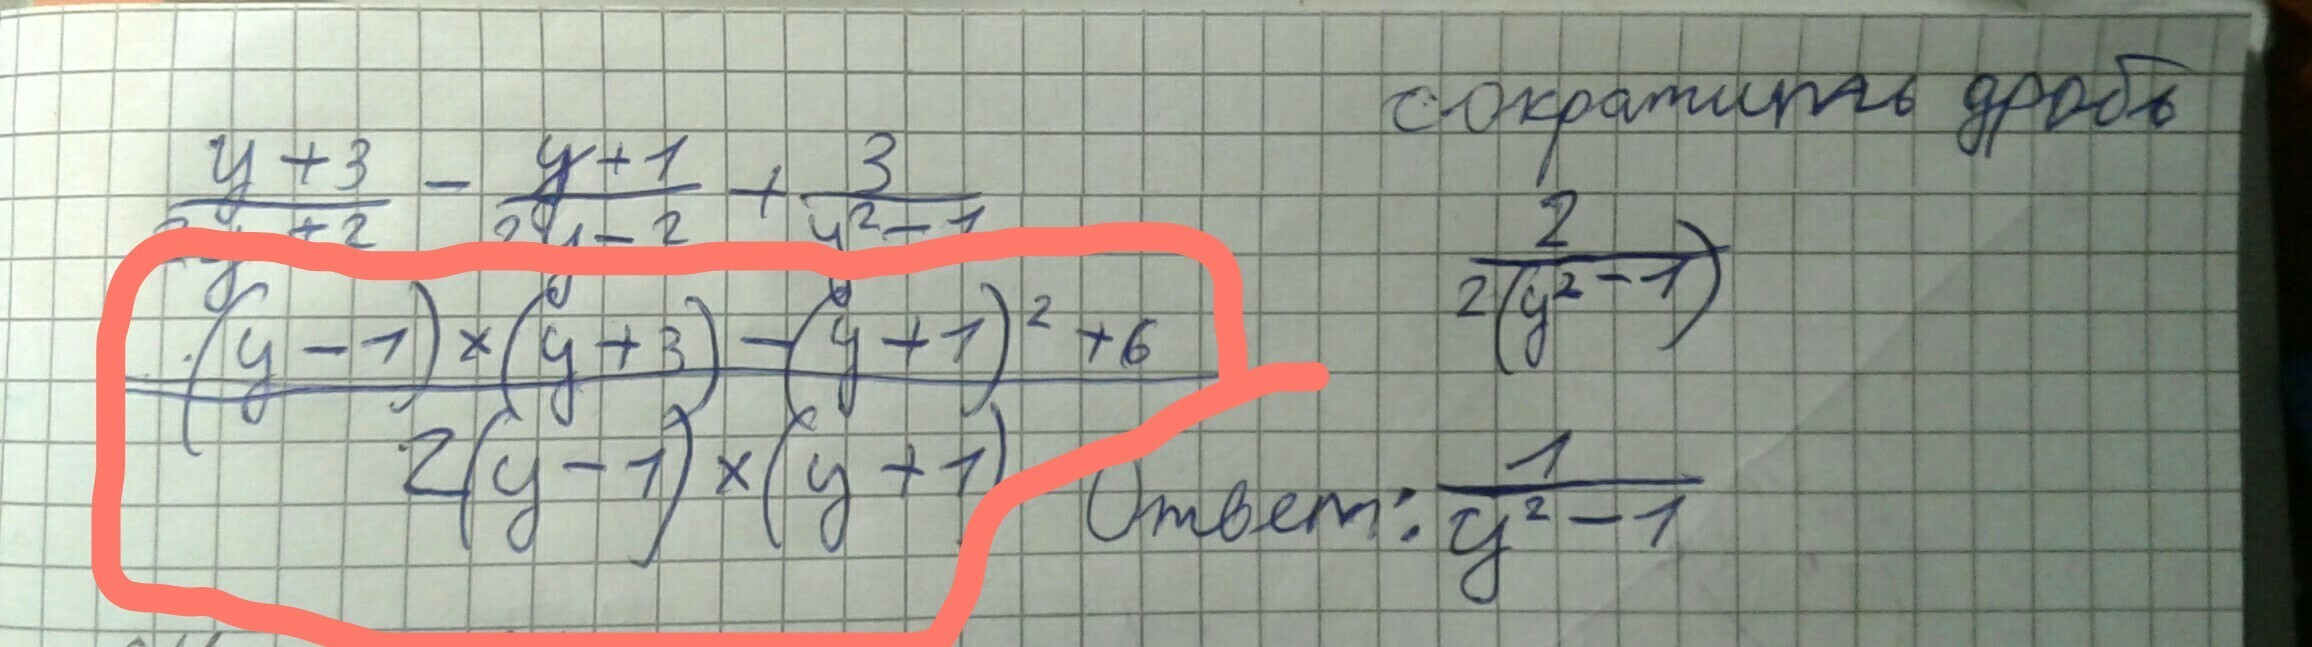 сократить дробь
(y+3)/(2y+2) - (y+1)/(2y-2) + 3/(y²-1)
2/(2(y²-1))
((y-1)×(y+3)-(y+1)²+6)/(2(y-1)×(y+1))
Ответ: 1/(y²-1)